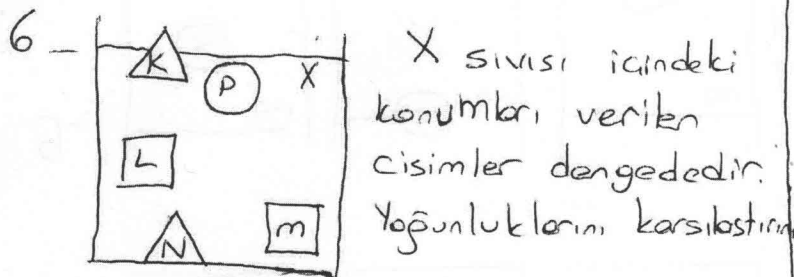 6 - X sıvısı içindeki
konumları verilen
cisimler dengededir.
Yoğunluklarını karşılaştırın
K
P
X
L
N
m